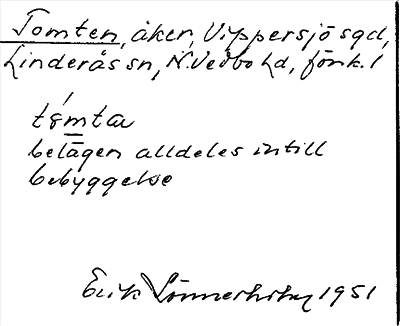 Tomten, åker, Vippersjö sgd,
Linderås sn, N. Vedbo hd, Jönk. l
tómta
belägen alldeles intill
bebyggelse
Erik 1951